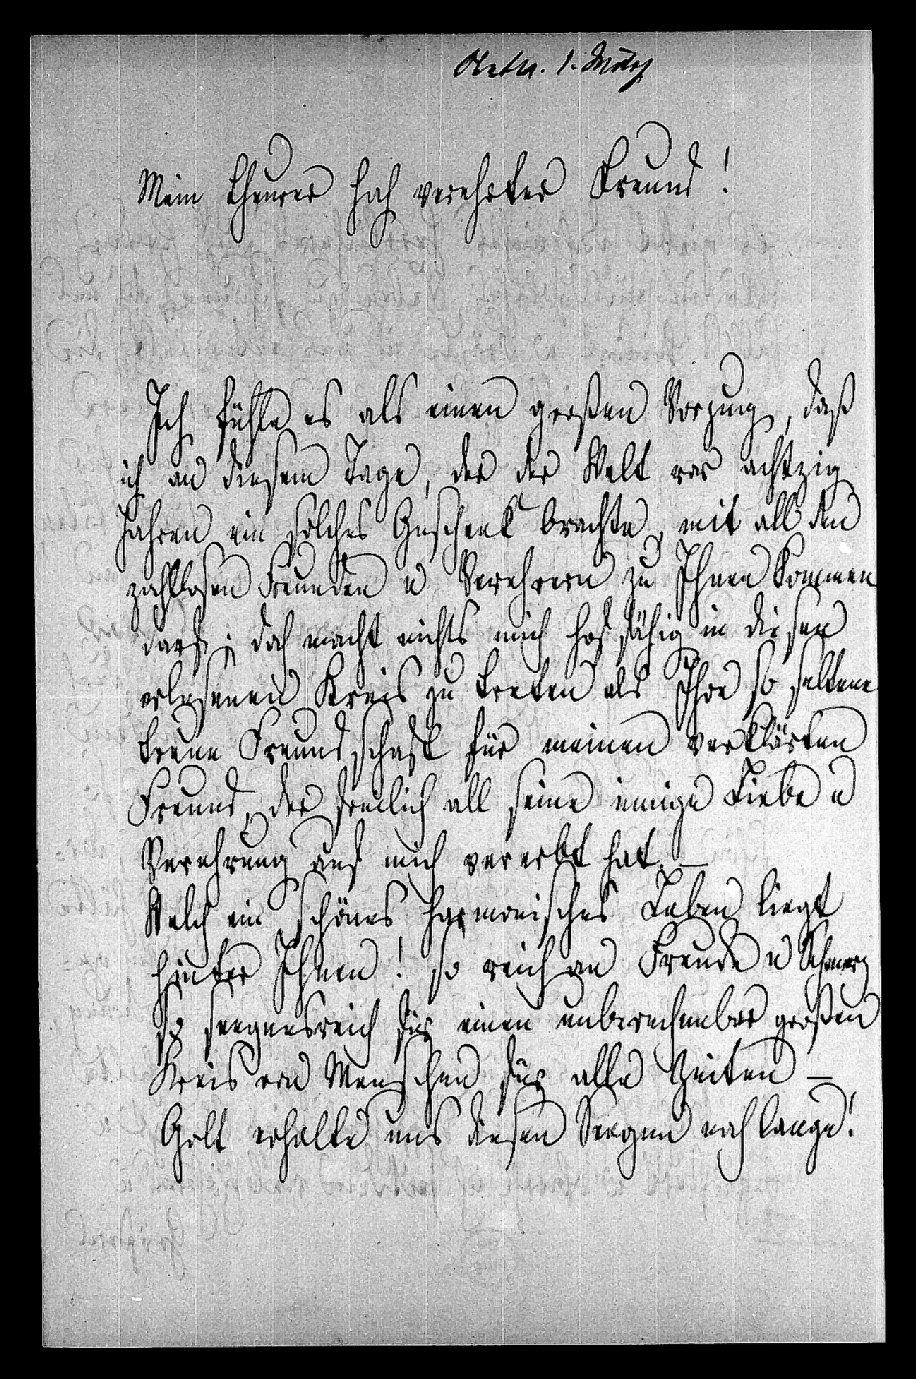 1. März
Mein theurer hoch verehrter Freund!
Ich fühle es als einen großen Vorzug, daß
ich an diesem Tage, der der Welt vor achtzig
Jahren ein solches Geschenk brachte, mit all den
zahllosen Freunden u Verehrern zu Ihnen kommen
darf; doch macht nichts mich hof fähig in diesen
erlesenen Kreis zu treten als Ihre so seltene
treue Freundschaft für meinen verklärten
Freund, der freilich all seine innige Liebe u
Verehrung auf mich vererbt hat. —
Welch ein schönes harmonisches Leben liegt
hinter Ihnen! so reich an Freude u Schmerz
so seegensreich für einen unberechenbar großen
Kreis von Menschen für alle Zeiten —
Gott erhalte uns diesen Seegen noch lange!